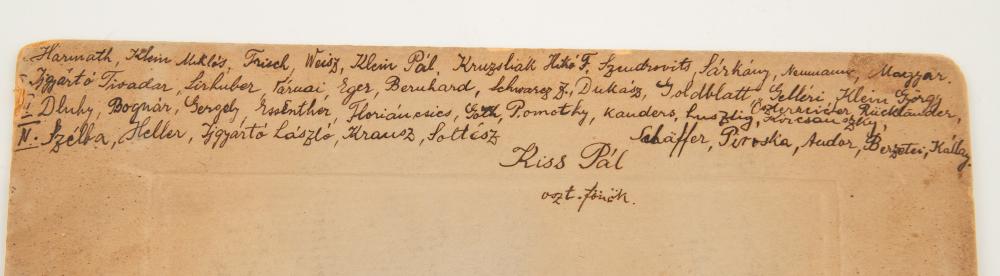 Harmath, Klein Miklós, Frisch, Weisz, Klein Pál, Kruzsliak Hikó F. Szendrovits, Sárkány, Neumann, Magyar.
Gyártó Tivadar, Lirhuber, Tárnai, Eger, Bernhard, Schwarcz Z, Dukász, Goldblatt, Gelleri, Klein György
I Dluhy, Bognár, Gergely, Essenther, Floriáncsics, Tóth, Pomothy, Kanders, Lusztig, Österreicher, Rücklander,
II. Szélba, Heller, Gyártó László, Krausz, Soltész Korcsánszky,
Schäffer, Piroska, Andor, Berzétei, Kállay.
Kiss Pál
oszt. főnök.